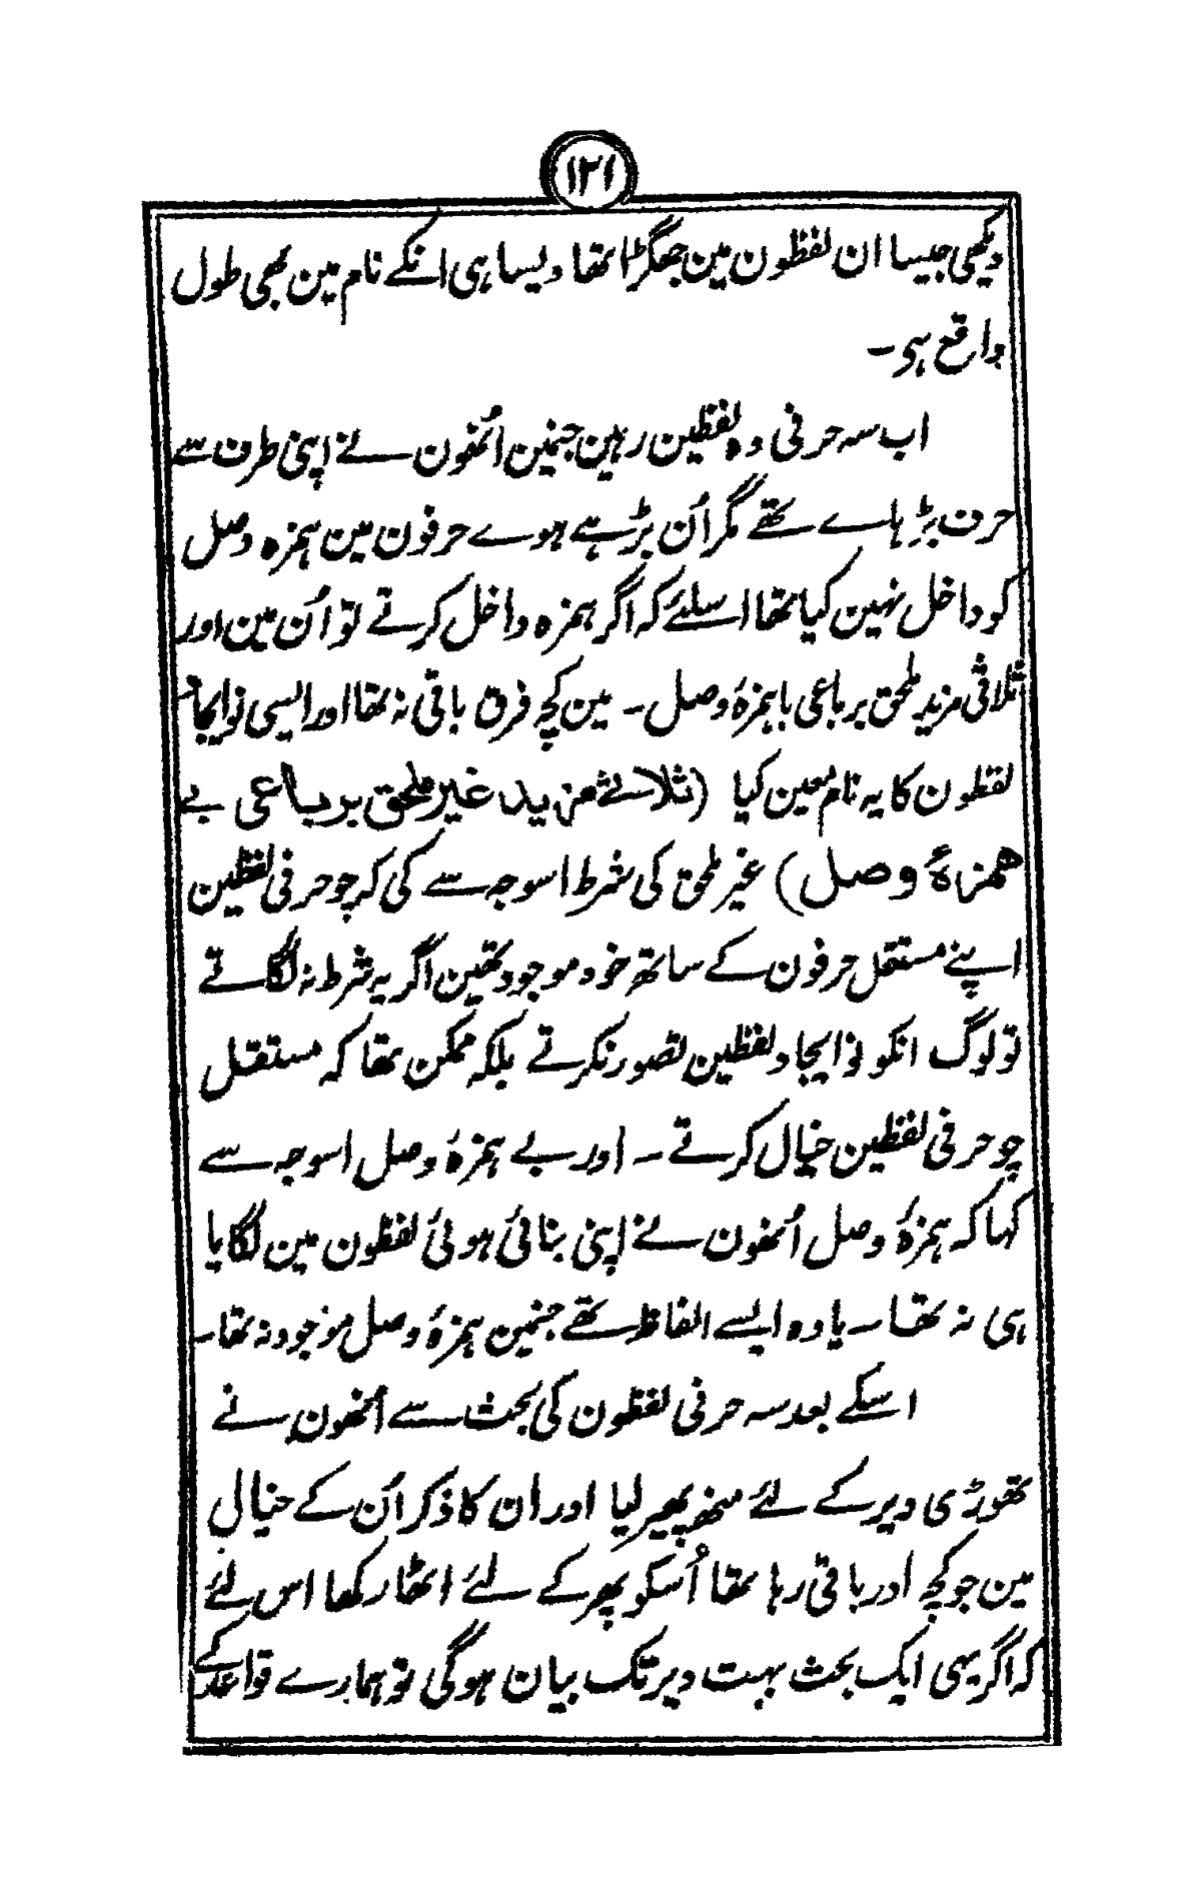 ۱۲۱
دیکھی جیسا ان لفظون مین جھگڑا تھا ویسا ہی انکے نام مین بھی طول
واقع ہی ۔
اب سہ حرفی وہ لفظین رہین جنمین اُنھون نے اپنی طرف سے
حرف بڑہاے تھے مگر اُن بڑہے ہوے حرفون مین ہمزہ وصل
کو داخل نہین کیا تھا اسلئے کہ اگر ہمزہ داخل کرتے تو اُن مین اور
ثلاثی مزید ملحق برباعی باہمزۂ وصل ۔ مین کچھ فرق باقی نہ تھا اور ایسی نوایجاد
لفظون کا یہ نام معین کیا (ثلاثی مزید غیر ملحق برباعی بے
ہمزۂ وصل) غیر ملحق کی شرط اسوجہ سے کی کہ چوحرفی لفظین
اپنے مستقل حرفون کے ساتھ خود موجود تھین اگر یہ شرط نہ لگاتے
تو لوگ انکو نوایجاد لفظین تصور نکرتے بلکہ ممکن تھا کہ مستقل
چوحرفی لفظین خیال کرتے ۔ اور بے ہمزۂ وصل اسوجہ سے
کہا کہ ہمزۂ وصل اُنھون نے اپنی بنائی ہوئی لفظون مین لگایا
ہی نہ تھا ۔ یا وہ ایسے الفاظ تھے جنمین ہمزۂ وصل موجود نہ تھا ۔
اسکے بعد سہ حرفی لفظون کی بحث سے اُنھون نے
تھوڑی دیر کے لئے منھ پھیر لیا اور ان کا ذکر اُن کے خیال
مین جو کچھ اور باقی رہا تھا اُسکو پھر کے لئے اٹھا رکھا اس لئے
کہ اگر یہی ایک بحث بہت دیر تک بیان ہوگی تو ہمارے قواعد کے